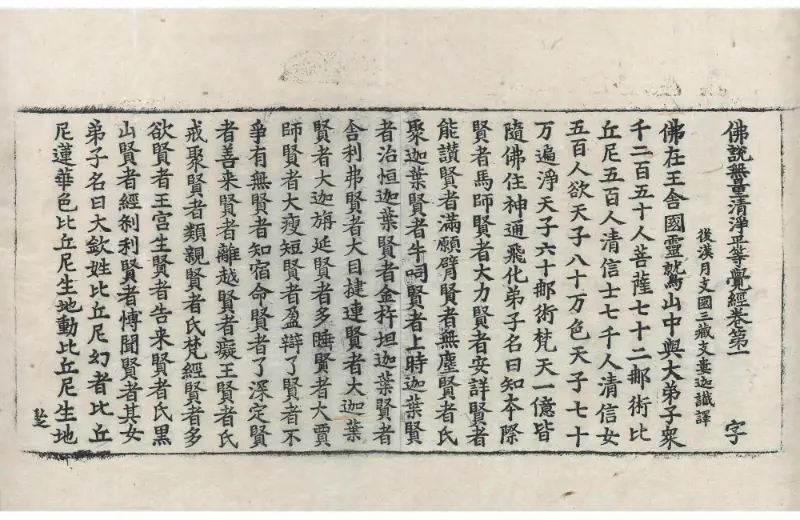 佛說無量清淨平等覺經卷第一 字
後漢月支國三藏支婁迦讖譯
佛在王舍國靈鷲山中與大弟子衆
千二百五十人菩薩七十二那術比
丘尼五百人清信士七千人清信女
五百人欲天子八十万色天子七十
万遍淨天子六十那術梵天一億皆
隨佛住神通飛化弟子名曰知本際
賢者馬師賢者大力賢者安詳賢者
能讃賢者滿願臂賢者無塵賢者氏
聚迦葉賢者牛呞賢者上時迦葉賢
者治恒迦葉賢者金杵坦迦葉賢者
舍利弗賢者大目揵連賢者大迦葉
賢者大迦旃延賢者多睡賢者大賈
師賢者大瘦短賢者盈辯了賢者不
爭有無賢者知宿命賢者了深定賢
者善来賢者離越賢者癡王賢者氏
戒聚賢者類親賢者氏梵經賢者多
欲賢者王宮生賢者告来賢者氏黑
山賢者經刹利賢者博聞賢者其女
弟子名曰大欽姓比丘尼幻者比丘
尼蓮華色比丘尼生地動比丘尼生地